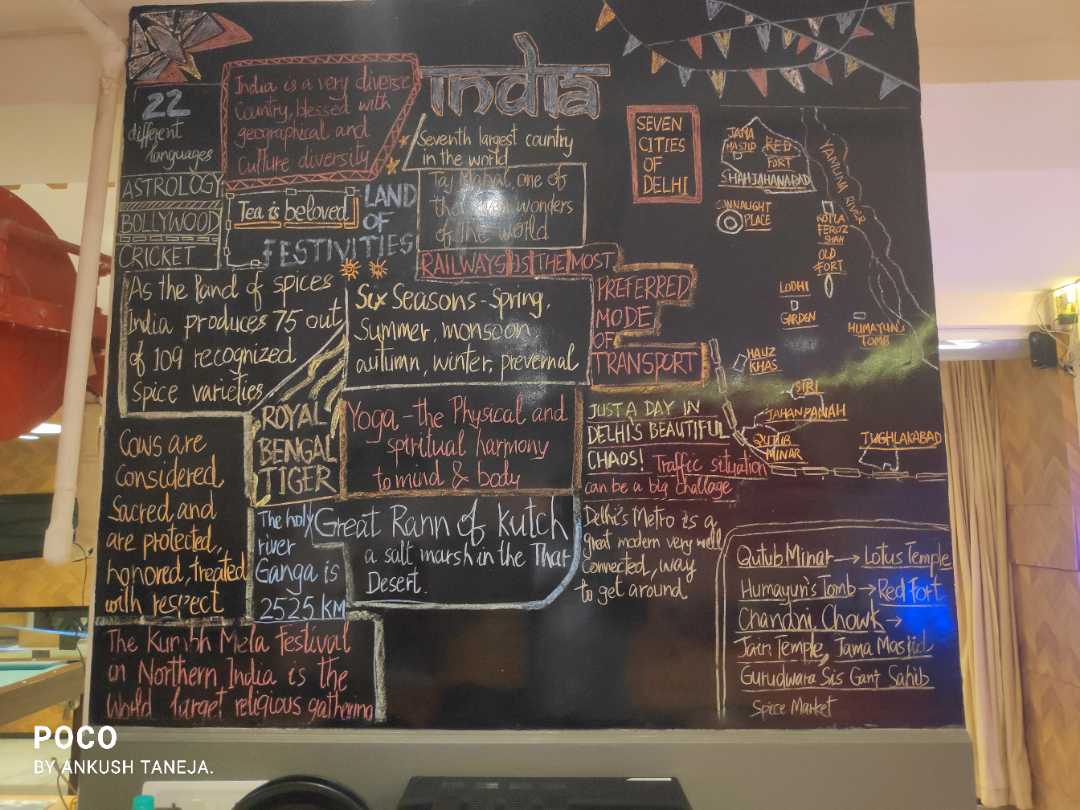 India
22
different
languages
India is a very diverse
Country, blessed with
geographical and
culture diversity
Seventh largest country
in the world
ASTROLOGY
BOLLYWOOD
CRICKET
Tea is beloved
LAND
OF
FESTIVITIES
Taj Mahal, one of
the wonders
of the world
RAILWAYS IS THE MOST
PREFERRED
MODE
OF
TRANSPORT
As the land of spices
India produces 75 out
of 109 recognized
spice varieties
Six Seasons - Spring,
Summer, monsoon
autumn, winter, prevernal
ROYAL
BENGAL
TIGER
Yoga - the Physical and
spiritual harmony
to mind & body
Cows are
Considered
Sacred, and
are protected,
honored, treated
with respect
The holy
river
Ganga is
2525 KM
Great Rann of Kutch
a salt marsh in the Thar
Desert.
The Kumbh Mela Festival
in Northern India is the
World larget religious gathering
SEVEN
CITIES
OF
DELHI
JAMA
MASJID
RED
FORT
SHAHJAHANABAD
YAMUNA RIVER
CONNAUGHT
PLACE
KOTLA
FEROZ
SHAH
OLD
FORT
LODHI
GARDEN
HUMAYUN'S
TOMB
HAUZ
KHAS
SIRI
JAHANPANAH
QUTUB
MINAR
TUGHLAKABAD
JUST A DAY IN
DELHI'S BEAUTIFUL
CHAOS! Traffic situation
can be a big challage.
Delhi's Metro is a
great modern very well
connected, way
to get around
Qutub Minar → Lotus Temple
Humayun's Tomb → Red Fort
Chandni Chowk →
Jain Temple, Jama Masjid
Gurudwara Sis Ganj Sahib
Spice Market
POCO
BY ANKUSH TANEJA.